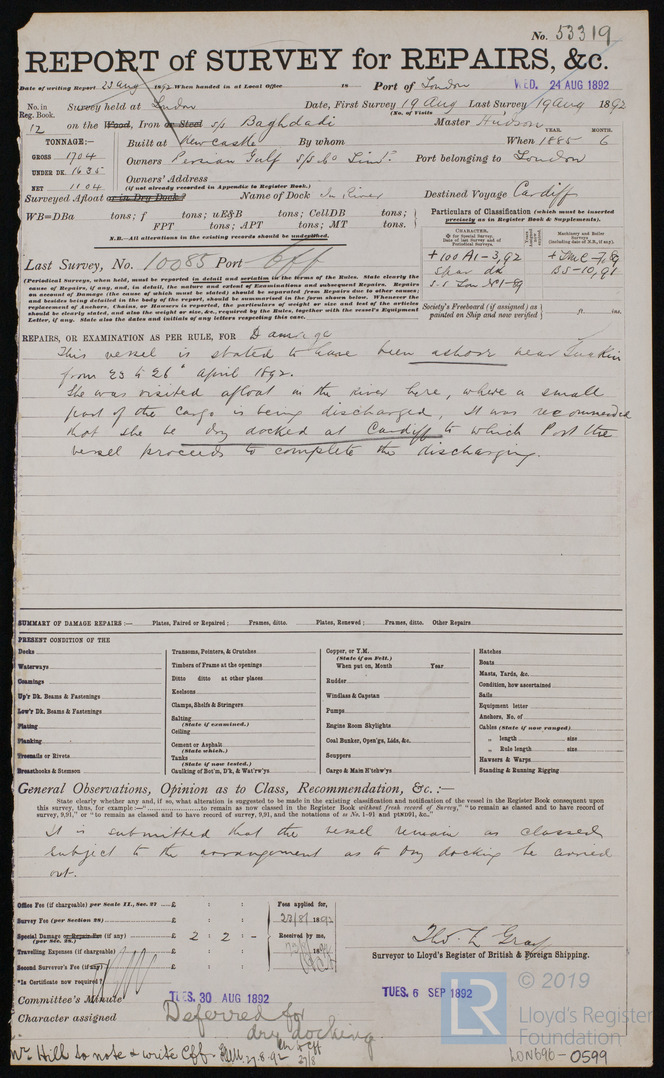 No. 53319
REPORT of SURVEY for REPAIRS, &c.
Date of writing Report 23 Aug 1892 When handed in at Local Office 18 Port of London WED. 24 AUG 1892
No. in Reg. Book. Survey held at London Date, First Survey 19 Aug Last Survey 19 Aug 1892
(No. of Visits
12 on the Wood, Iron or Steel s/s Baghdadi Master Hudson
TONNAGE:— Built at Newcastle By whom When 1885 YEAR. MONTH. 6
GROSS 1704 Owners Persian Gulf s/s Co Limd. Port belonging to London
UNDER DK. 1635 Owners' Address
NET 1104 (if not already recorded in Appendix to Register Book.)
Surveyed Afloat or in Dry Dock? Name of Dock In River Destined Voyage Cardiff
WB=DBa tons; f tons; uE&B tons; CellDB tons;
FPT tons; APT tons; MT tons.
N.B.—All alterations in the existing records should be underlined.
Particulars of Classification (which must be inserted precisely as in Register Book & Supplements).
CHARACTER, Machinery and Boiler Surveys (including date of N.B., if any).
+ 100 A1 - 3,92 + LMC - 7,89
Spar dk BS - 10,91
S.S Lon No1-89
Society's Freeboard (if assigned) as painted on Ship and now verified ft. ins.
Last Survey, No. 10085 Port Cff
(Periodical Surveys, when held, must be reported in detail and seriatim in the terms of the Rules. State clearly the
cause of Repairs, if any, and, in detail, the nature and extent of Examinations and subsequent Repairs. Repairs
on account of Damage (the cause of which must be stated) should be separated from Repairs due to other causes;
and besides being detailed in the body of the report, should be summarised in the form shown below. Whenever the
replacement of Anchors, Chains, or Hawsers is reported, the particulars of weight or size and test of the articles
should be clearly stated, and also the weight or size, &c., required by the Rules, together with the vessel's Equipment
Letter, if any. State also the dates and initials of any letters respecting this case.
REPAIRS, OR EXAMINATION AS PER RULE, FOR Damage
This vessel is stated to have been ashore near
from 23 to 26th April 1892.
She was visited afloat in the river here, where a small
part of the cargo is being discharged, It was recommended
that she be dry docked at Cardiff to which Port the
vessel proceeds to complete the discharging.
SUMMARY OF DAMAGE REPAIRS:— Plates, Faired or Repaired; Frames, ditto. Plates, Renewed; Frames, ditto. Other Repairs
PRESENT CONDITION OF THE
Decks
Waterways
Coamings
Up'r Dk. Beams & Fastenings
Low'r Dk. Beams & Fastenings
Plating
Planking
Treenails or Rivets
Breasthooks & Stemson
Transoms, Pointers, & Crutches
Timbers of Frame at the openings
Ditto ditto at other places
Keelsons
Clamps, Shelfs & Stringers
Salting
(State if examined.)
Ceiling
Cement or Asphalt
(State which.)
Tanks
(State if now tested.)
Caulking of Bot'm, D'k, & Wat'rw'ys
Copper, or Y.M.
(State if on Felt.)
When put on, Month Year
Rudder
Windlass & Capstan
Pumps
Engine Room Skylights
Coal Bunker, Open'gs, Lids, &c.
Scuppers
Cargo & Main H'tchw'ys
Hatches
Boats
Masts, Yards, &c.
Condition, how ascertained
Sails
Equipment letter
Anchors, No. of
Cables (State if now ranged)
„ length size
„ Rule length size
Hawsers & Warps
Standing & Running Rigging
General Observations, Opinion as to Class, Recommendation, &c. :—
State clearly whether any and, if so, what alteration is suggested to be made in the existing classification and notification of the vessel in the Register Book consequent upon
this survey, thus, for example:—" to remain as now classed in the Register Book without fresh record of Survey," "to remain as classed and to have record of
survey, 9,91," or "to remain as classed and to have record of survey, 9,91, and the notations of ss No. 1-91 and ptND91, &c."
It is submitted that the vessel remain as classed
subject to the arrangement as to Dry docking be carried
out.
Office Fee (if chargeable) per Scale II., Sec. 27 £ : :
Survey Fee (per Section 28) £ : :
Special Damage or Repair Fee (if any) £ 2 : 2 : -
(per Sec. 28.)
Travelling Expenses (if chargeable) £ : :
Second Surveyor's Fee (if any) £ : :
*Is Certificate now required?
Fees applied for,
23/8/ 1892
Received by me,
Thos. L Gray
Surveyor to Lloyd's Register of British & Foreign Shipping.
Committee's Minute TUES. 30 AUG 1892 TUES. 6 SEP 1892
Character assigned Deferred for
dry docking.
Mr Hill to note & write Cff. 27.8.92
27/8
© 2019
LR
Lloyd's Register
Foundation
LON696-0599